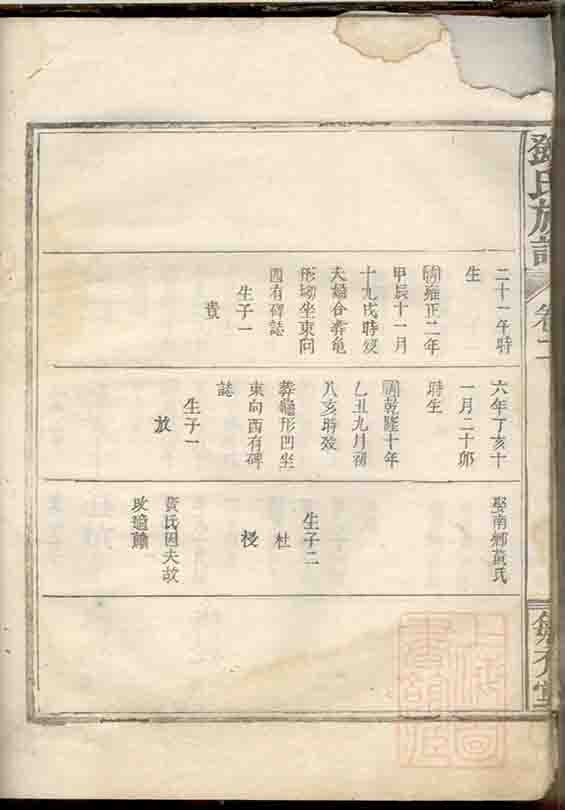 鄧氏族譜
卷二
二十一午時
生
雍正二年
甲辰十一月
十九戌時歿
夫婦合葬龜
形坳坐東向
西有碑誌
生子一
貴
六年丁亥十
一月二十卯
時生
乾隆十年
乙丑九月初
八亥時歿
葬龜形凹坐
東向西有碑
誌
生子一
放
娶南鄉黃氏
生子二
杜
黃氏因夫故
改適蕭